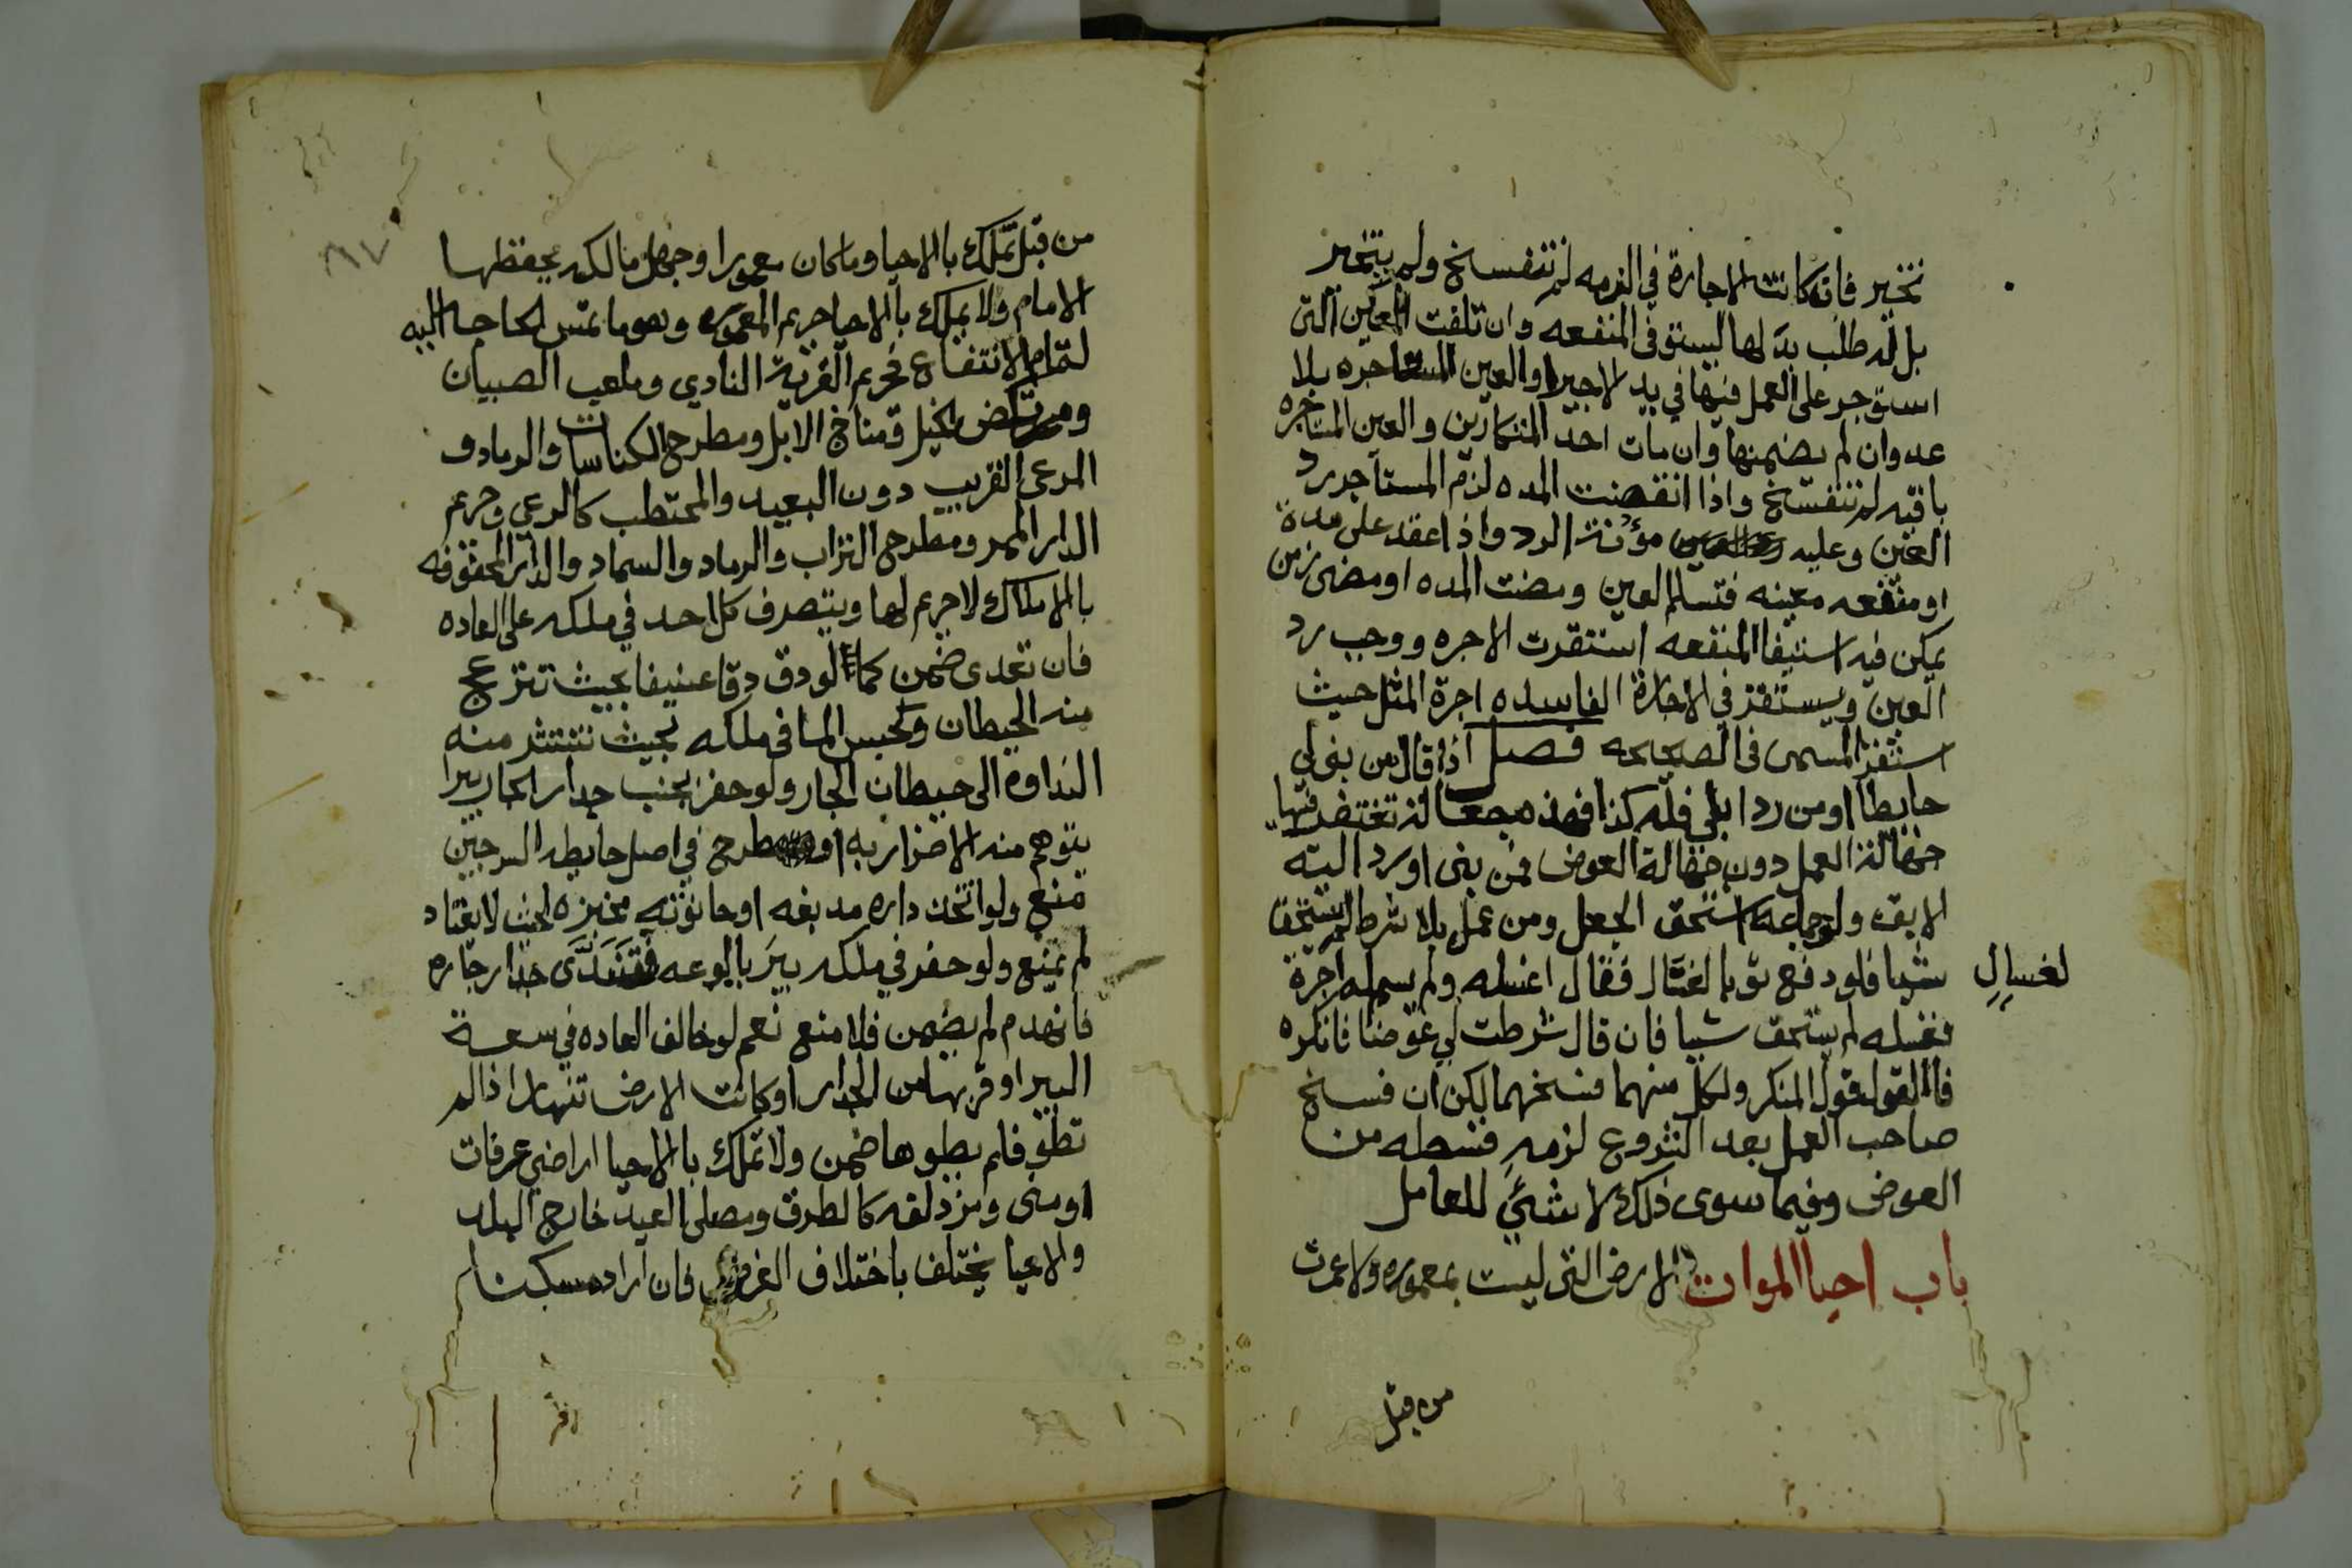 تخير فان كانت الاجارة في الذمه لم تنفسخ ولم يتخير
بل له طلب بدلها ليستوفي المنفعه وان تلفت العين التى
استوجر على العمل فيها في يد الاجير او العين المستاجره بلا
عدوان لم يضمنها وان مات احد المتكاريين والعين المستاجره
باقيه لم تنفسخ واذا انقضت المده لزم المستاجر رد
العين وعليه مؤنة الرد واذا عقد على مدة
او منفعه معينه فتسلم العين ومضت المده او مضى زمن
يمكن فيه استيفا المنفعه استقرت الاجره ووجب رد
العين ويستقر في الاجارة الفاسده اجرة المثل حيث
استقر المسمى في الصحيحه فصل اذا قال من بنى لي
حايطا او من رد ابلي فله كذا فهذه جعالة تغتفر فيها
جهالة العمل دون جهالة العوض فمن بنى او رد اليه
الابقه ولو جماعه استحق الجعل ومن عمل بلا شرط لم يستحق
شيا فلو دفع ثوبا لغسال فقال اغسله ولم يسم له اجرة
لغسال
فغسله لم يستحق شيا فان قال شرطت لي عوضا فانكره
فالقول قول المنكر ولكل منهما فسخهما لكن ان فسخ
صاحب العمل بعد الشروع لزمه قسطه من
العوض وفيما سوى ذلك لا شئ للعامل
باب احيا الموات الارض التى ليست بمعموره ولا عمرت
من قبل
من قبل تملك بالاحيا وما كان معمورا وجهل مالكه يحفظها
الامام ولا يملك بالاحيا حريم المعموره وهو ما تمس الحاجه اليه
لتمام الانتفاع فحريم القرية النادي وملعب الصبيان
ومرتكض الخيل ومناخ الابل ومطرح الكناسات والرماد و
المرعى القريب دون البعيد والمحتطب كالرعي وحريم
الدار الممر ومطرح التراب والرماد والسماد والدار المحفوفه
بالاملاك لا حريم لها ويتصرف كل احد في ملكه على العاده
فان تعدى ضمن كما لو دق دقا عنيفا بحيث تنزعج
منه الحيطان وكحبس الما في ملكه بحيث تنتشر منه
النداوه الى حيطان الجار ولو حفر بجنب جدار الجار بيرا
يتوهم منه الاضرار به او طرح في اصل حايطه السرجين
منع ولو اتخذ داره مدبغه او حانوته مخبزه بحيث لا يعتاد
لم يمنع ولو حفر في ملكه بير بالوعه فتندى جدار جاره
فانهدم لم يضمن فلا منع نعم لو خالف العاده في سعة
البير او قربها من الجدار او كانت الارض تنهار اذا لم
تطو فلم يطوها ضمن ولا تملك بالاحيا اراضي عرفات
او منى ومزدلفه كالطرق ومصلى العيد خارج البلد
والاحيا يختلف باختلاف الغرض فان اراد مسكنا